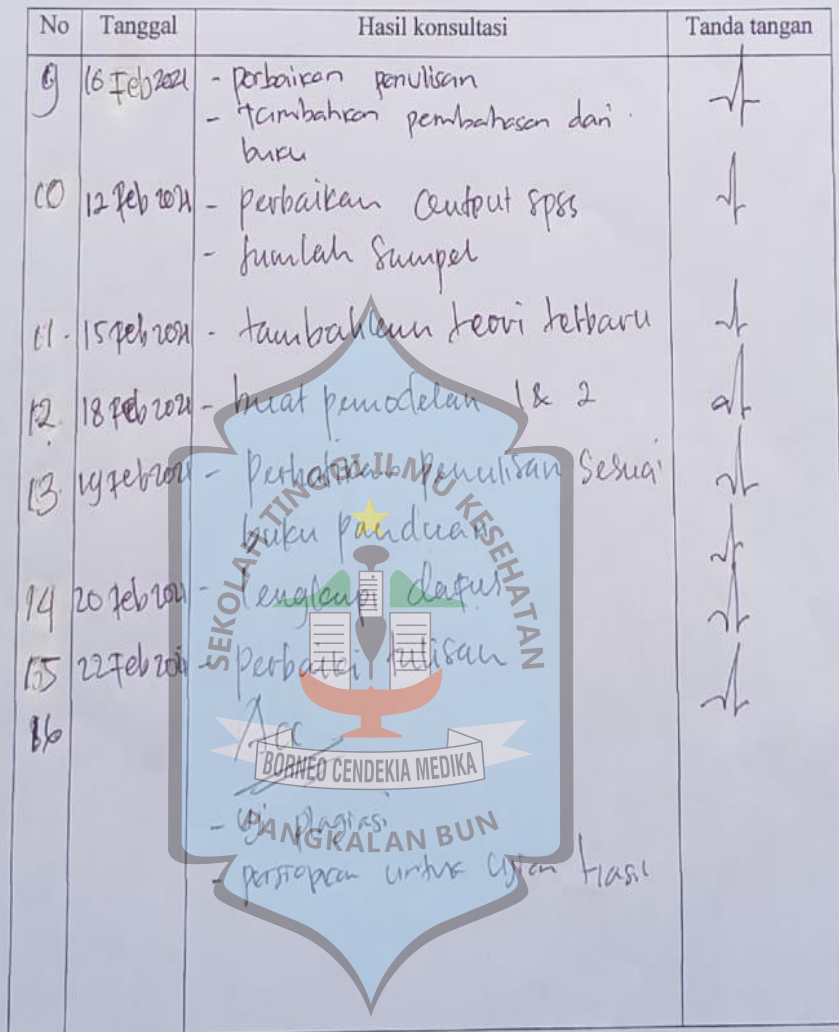 No Tanggal Hasil konsultasi Tanda tangan
9 16 Feb 2021 - perbaikan penulisan
- tambahkan pembahasan dari
buku
10 12 Feb 2021 - perbaikan Output spss
- Jumlah Sampel
11. 15 Feb 2021 - tambahkan teori terbaru
12. 18 Feb 2021 - buat pemodelan 1 & 2
13. 19 Feb 2021 - Perbaikan Penulisan Sesuai
buku panduan
14 20 Feb 2021 - lengkapi dapus
15 22 Feb 2021 - perbaiki tulisan
16 Acc
- uji plagiasi
- persiapan untuk ujian Hasil
SEKOLAH TINGGI ILMU KESEHATAN
BORNEO CENDEKIA MEDIKA
PANGKALAN BUN